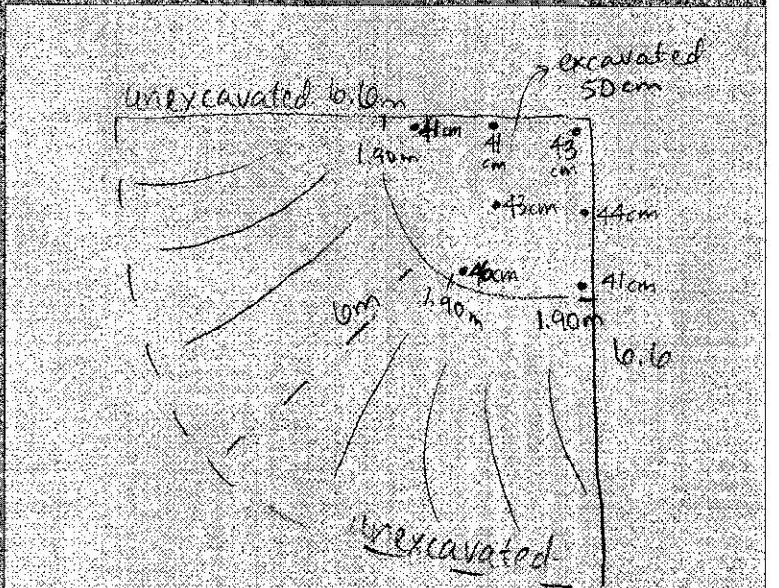 excavated
50cm
unexcavated 6.6m
41cm
41
cm
43
cm
1.90m
43cm
44cm
46cm
41cm
6m
1.90m
1.90m
6.6
unexcavated